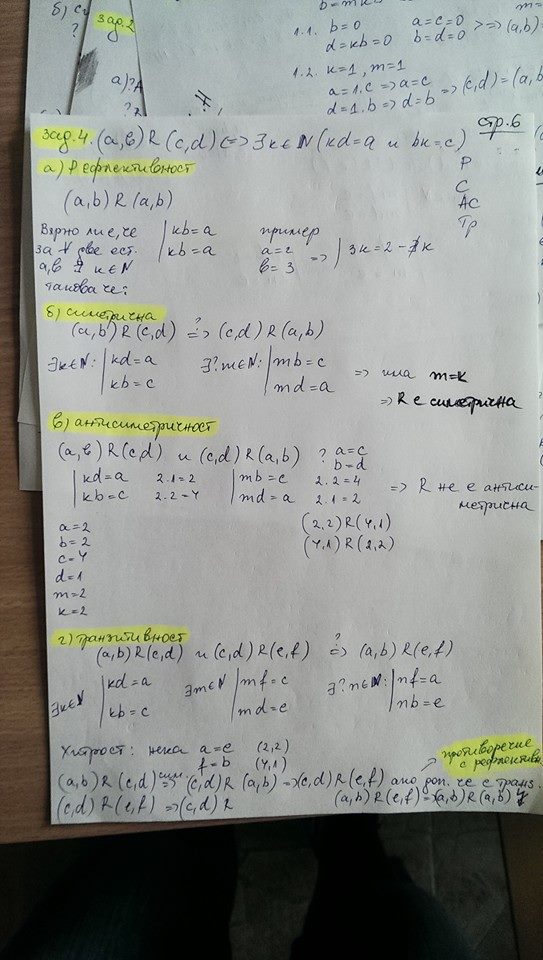 б) си
?
зад.2
а)?
b = mkb
1.1. b=0 a=c=0
d=kb=0 b=d=0 > => (a,b)
1.2. k=1, m=1
a=1.c => a=c
d=1.b => d=b => (c,d) = (a,b
стр.6
зад.4. (a,b) R (c,d) <=> ∃k∈N (kd=a и bk=c)
Р
С
АС
Тр
а) Рефлективност
(a,b) R (a,b)
Вярно ли е, че | kb=a пример
за ∀ две ест. | kb=a a=2 => | 3k=2
a,b ∃ k∈N b=3
такова че:
б) симетрична
(a,b) R (c,d) ?=> (c,d) R (a,b)
∃k∈N: | kd=a ∃?m∈N: | mb=c
| kb=c | md=a => има m=k
=> R е симетрична
в) антисиметричност
(a,b) R (c,d) и (c,d) R (a,b) ? a=c
b=d
| kd=a 2.1=2 | mb=c 2.2=4
| kb=c 2.2=4 | md=a 2.1=2 => R не е антиси-
метрична
a=2 (2,2) R (4,1)
b=2 (4,1) R (2,2)
c=4
d=1
m=2
k=2
г) транзитивност
(a,b) R (c,d) и (c,d) R (e,f) ?=> (a,b) R (e,f)
∃k∈N | kd=a ∃m∈N | mf=c ∃?n∈N: | nf=a
| kb=c | md=e | nb=e
Хитрост: нека a=e (2,2)
f=b (4,1)
противоречие
с рефлективн.
(a,b) R (c,d) сим=> (c,d) R (a,b) => (c,d) R (e,f) ако доп. че е транз.
(c,d) R (e,f) => (c,d) R (a,b) R (e,f) = (a,b) R (a,b)